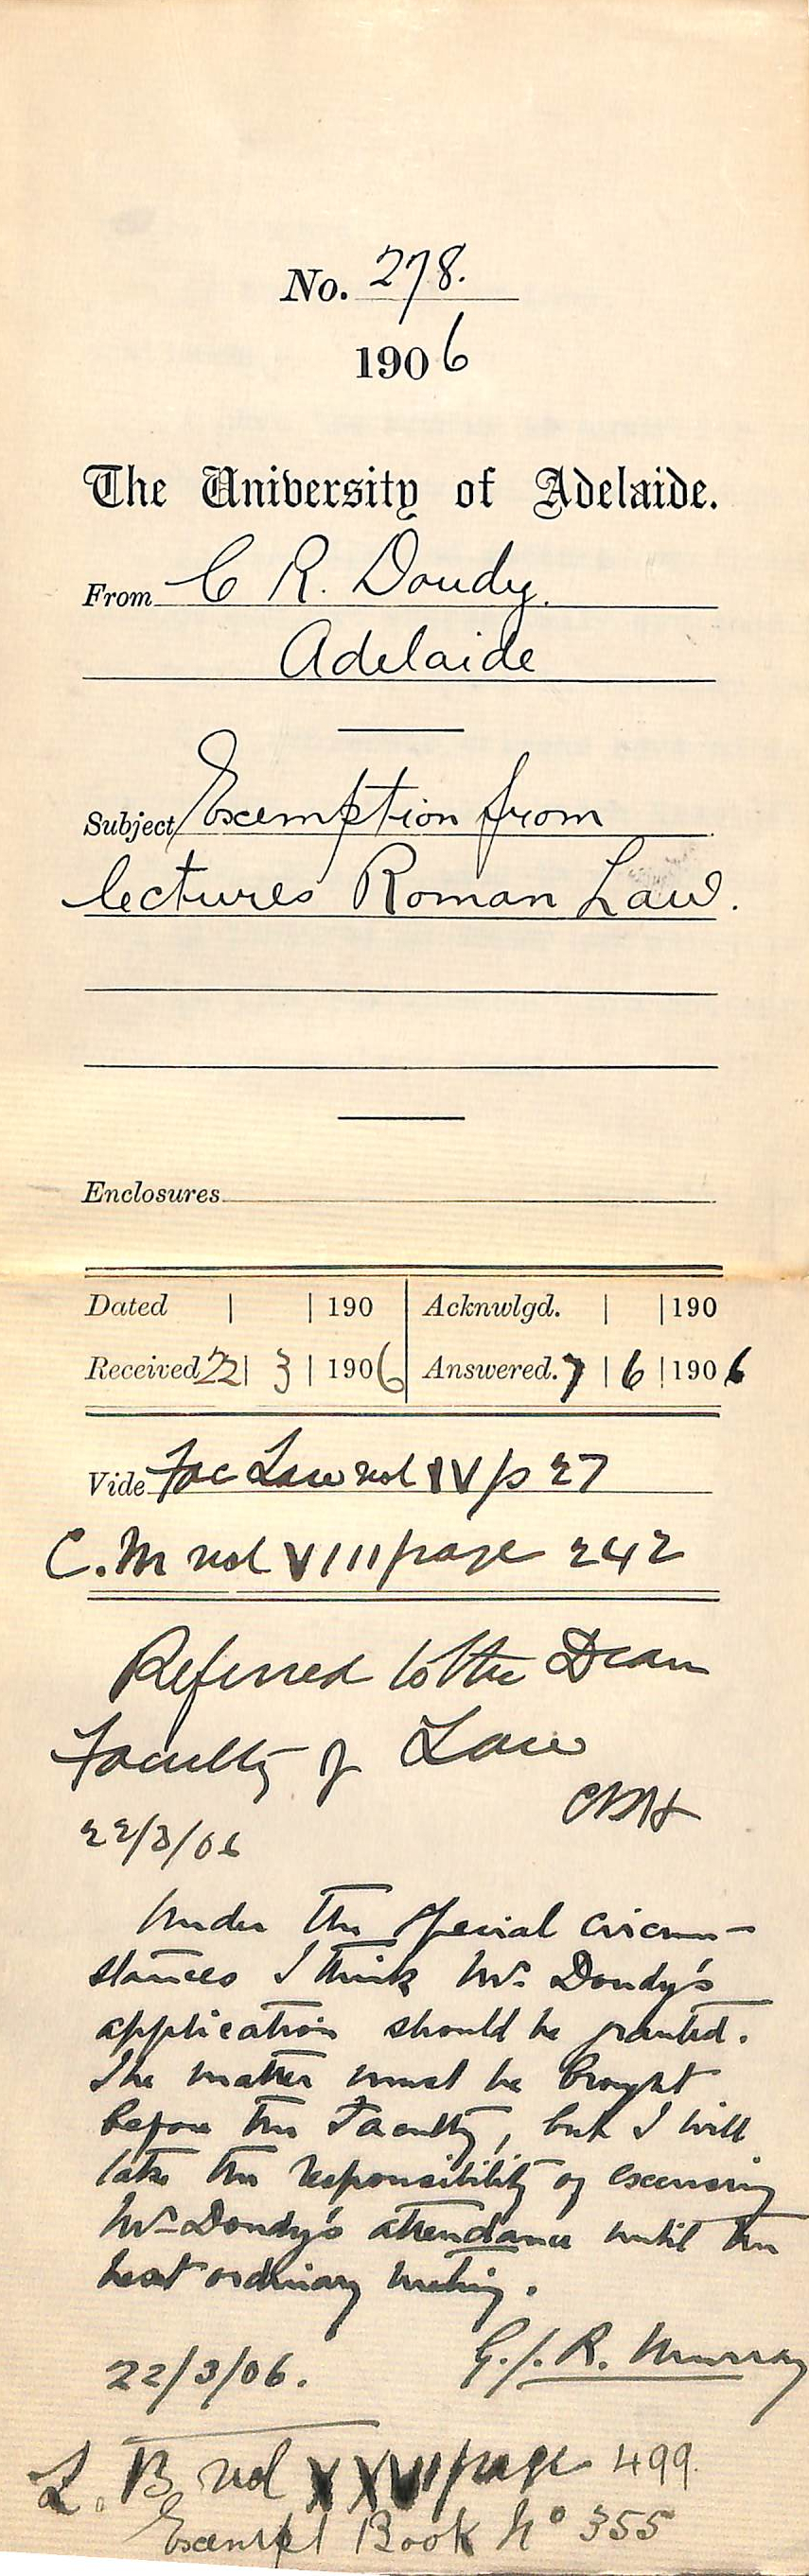 No. 278.
1906
The University of Adelaide.
From C R. Doudy.
Adelaide
Subject Exemption from
lectures Roman Law.
Enclosures
Dated | | 190 | Acknwlgd. | | 190
Received 22 | 3 | 1906 | Answered. 7 | 6 | 1906
Vide Fac Law vol IV p 27
C.M vol VIII page 242
Referred to the Dean
Faculty of Law
22/3/06
Under the special circum-
stances I think Mr. Doudy's
application should be granted.
The matter must be brought
before the Faculty, but I will
take the responsibility of excusing
Mr Doudy's attendance until the
next ordinary meeting.
22/3/06. G.J.R. Murray
L.B vol page 499
Exempt Book No 355